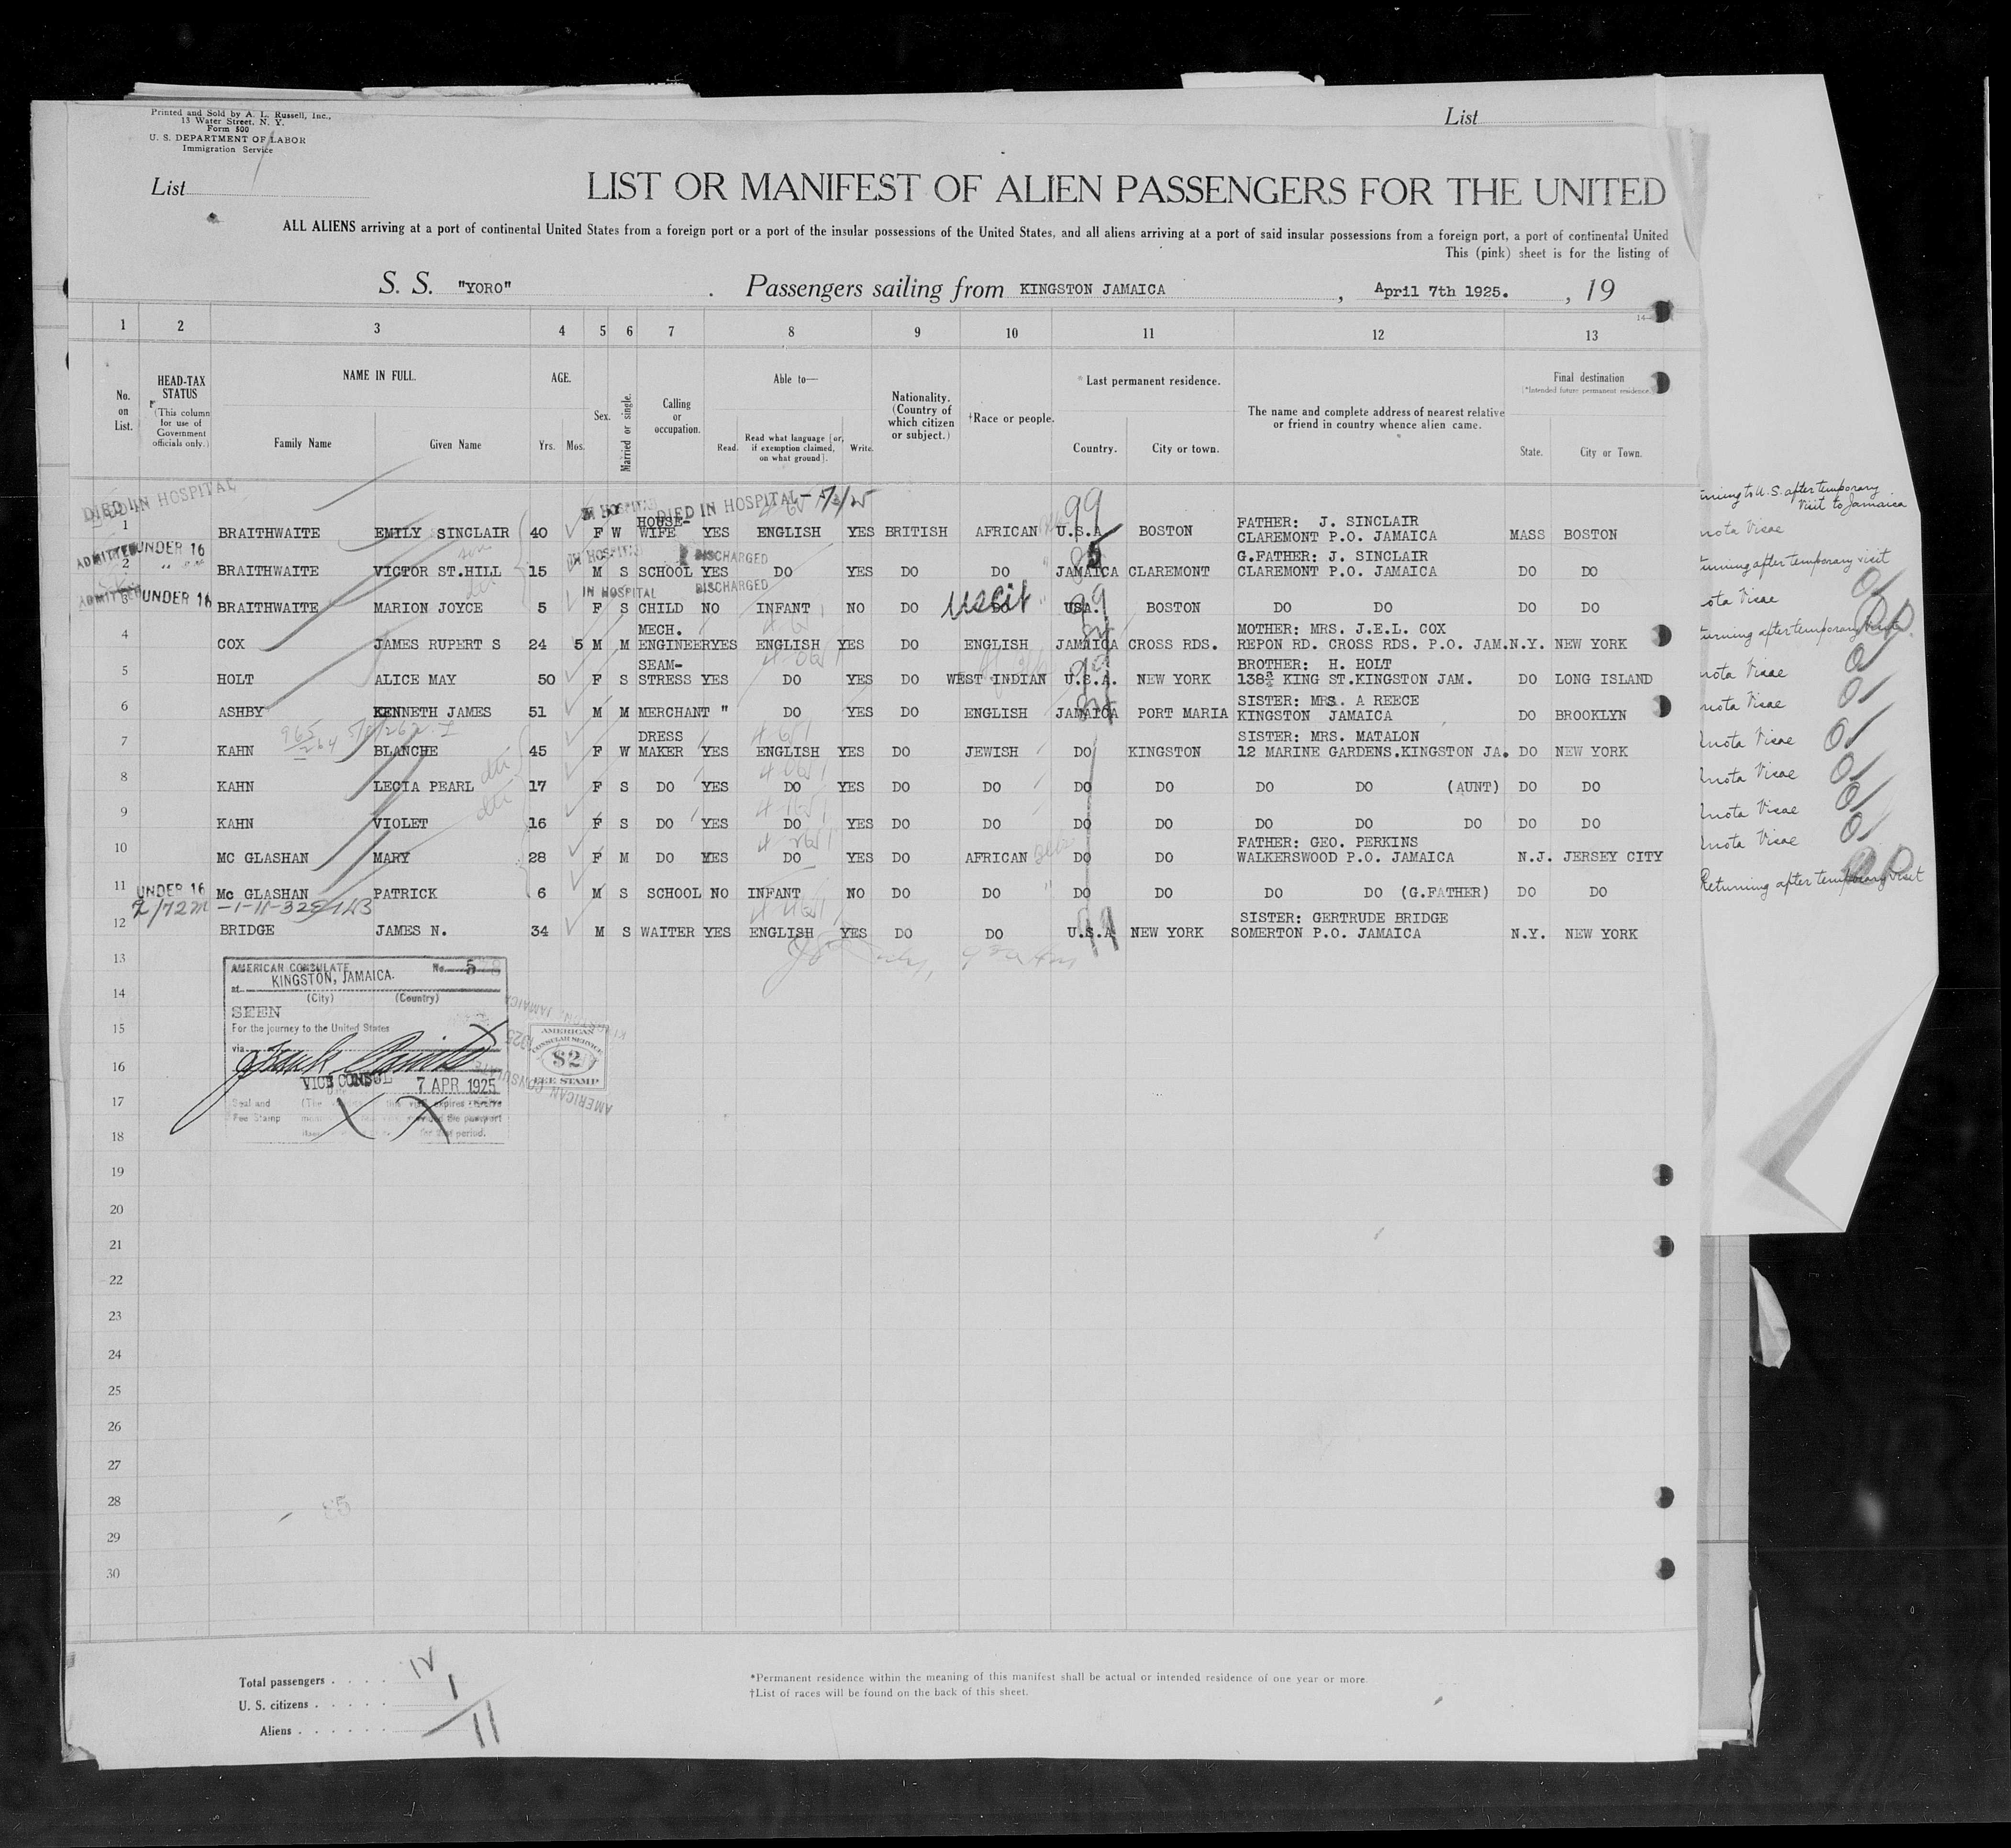 Printed and Sold by A. L. Russell, Inc.,
13 Water Street, N. Y.
Form 500
U. S. DEPARTMENT OF LABOR
Immigration Service
List
List
LIST OR MANIFEST OF ALIEN PASSENGERS FOR THE UNITED
ALL ALIENS arriving at a port of continental United States from a foreign port or a port of the insular possessions of the United States, and all aliens arriving at a port of said insular possessions from a foreign port, a port of continental United
This (pink) sheet is for the listing of
S. S. "YORO" Passengers sailing from KINGSTON JAMAICA, April 7th 1925. , 19
1 2 3 4 5 6 7 8 9 10 11 12 13
No. on List.
HEAD-TAX STATUS
(This column for use of Government officials only.)
NAME IN FULL.
Family Name Given Name
AGE.
Yrs. Mos.
Sex.
Married or single.
Calling or occupation.
Able to—
Read. Read what language [or, if exemption claimed, on what ground]. Write.
Nationality. (Country of which citizen or subject.)
†Race or people.
*Last permanent residence.
Country. City or town.
The name and complete address of nearest relative or friend in country whence alien came.
Final destination
(*Intended future permanent residence.)
State. City or Town.
DIED IN HOSPITAL
IN HOSPITAL DIED IN HOSPITAL
1 BRAITHWAITE EMILY SINCLAIR 40 F W HOUSE-WIFE YES ENGLISH YES BRITISH AFRICAN U.S.A. BOSTON FATHER: J. SINCLAIR CLAREMONT P.O. JAMAICA MASS BOSTON
ADMITTED UNDER 16 IN HOSPITAL DISCHARGED
2 BRAITHWAITE VICTOR ST.HILL 15 M S SCHOOL YES DO YES DO DO JAMAICA CLAREMONT G.FATHER: J. SINCLAIR CLAREMONT P.O. JAMAICA DO DO
ADMITTED UNDER 16 IN HOSPITAL DISCHARGED
3 BRAITHWAITE MARION JOYCE 5 F S CHILD NO INFANT NO DO DO uscit USA. BOSTON DO DO DO DO
4 COX JAMES RUPERT S 24 5 M M MECH. ENGINEER YES ENGLISH YES DO ENGLISH JAMAICA CROSS RDS. MOTHER: MRS. J.E.L. COX REPON RD. CROSS RDS. P.O. JAM. N.Y. NEW YORK
5 HOLT ALICE MAY 50 F S SEAM-STRESS YES DO YES DO WEST INDIAN U.S.A. NEW YORK BROTHER: H. HOLT 138¾ KING ST.KINGSTON JAM. DO LONG ISLAND
6 ASHBY KENNETH JAMES 51 M M MERCHANT " DO YES DO ENGLISH JAMAICA PORT MARIA SISTER: MRS. A REECE KINGSTON JAMAICA DO BROOKLYN
7 KAHN BLANCHE 45 F W DRESS MAKER YES ENGLISH YES DO JEWISH DO KINGSTON SISTER: MRS. MATALON 12 MARINE GARDENS.KINGSTON JA. DO NEW YORK
8 KAHN LECIA PEARL 17 F S DO YES DO YES DO DO DO DO DO DO (AUNT) DO DO
9 KAHN VIOLET 16 F S DO YES DO YES DO DO DO DO DO DO DO DO DO
10 MC GLASHAN MARY 28 F M DO YES DO YES DO AFRICAN DO DO FATHER: GEO. PERKINS WALKERSWOOD P.O. JAMAICA N.J. JERSEY CITY
UNDER 16
11 Mc GLASHAN PATRICK 6 M S SCHOOL NO INFANT NO DO DO DO DO DO DO (G.FATHER) DO DO
12 BRIDGE JAMES N. 34 M S WAITER YES ENGLISH YES DO DO U.S.A NEW YORK SISTER: GERTRUDE BRIDGE SOMERTON P.O. JAMAICA N.Y. NEW YORK
13
14
15
16
17
18
19
20
21
22
23
24
25
26
27
28
29
30
AMERICAN CONSULATE No. 5
at KINGSTON, JAMAICA.
(City) (Country)
SEEN
For the journey to the United States
via
VICE CONSUL 7 APR 1925
Seal and
Fee Stamp
AMERICAN
CONSULAR SERVICE
$2
FEE STAMP
to U.S. after temporary
Visit to Jamaica
Visae
after temporary visit
Visae
after temporary visit
Visae
Visae
Visae
Visae
Visae
Visae
Returning after temporary visit
Total passengers
U. S. citizens 1
Aliens 11
*Permanent residence within the meaning of this manifest shall be actual or intended residence of one year or more.
†List of races will be found on the back of this sheet.